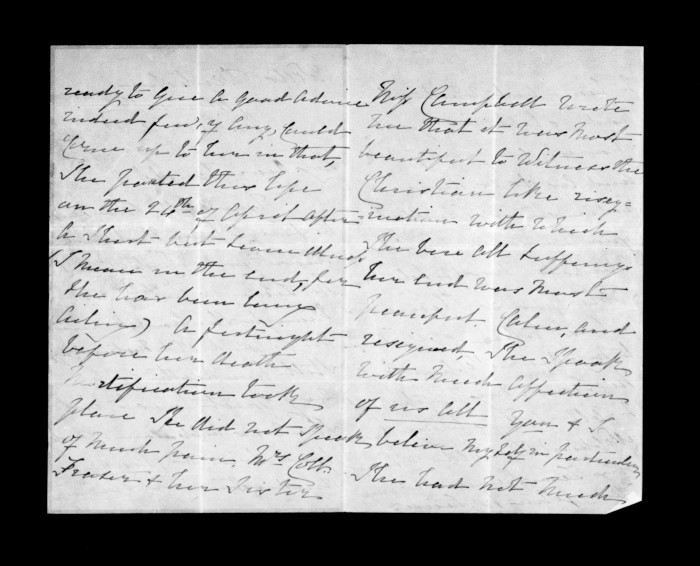 ready to give a good advice
indeed few, if any, could
come up to her in that,
She parted this life
on the 24th of April after
a short but severe illness
(I mean in the end, for
she has been long
ailing) A fortnight
before her death
mortification took
place She did not speak
of much pain. Mrs Coll.
Fraser & her sister
Miss Campbell wrote
me that it was most
beautiful to witness the
Christian like resig=
nation with which
She bore all sufferings
her end was most
peaceful. Calm, and
resigned, She spook
with much affection
of us all You & I
believe myself in particular,
She had not much